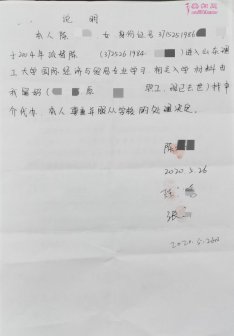 说明
本人陈 女 身份证号3)2526986
于2004年派替陈 (3)2526 1984 )进入山东理
工大学国际经济与贸易专业学习，相关入学材料由
我舅妈( ，原 职工，现已去世)转中
介代办。本人尊重并服从学校的处理决定。
陈
2020.5.26
陈
张
2020.5.26